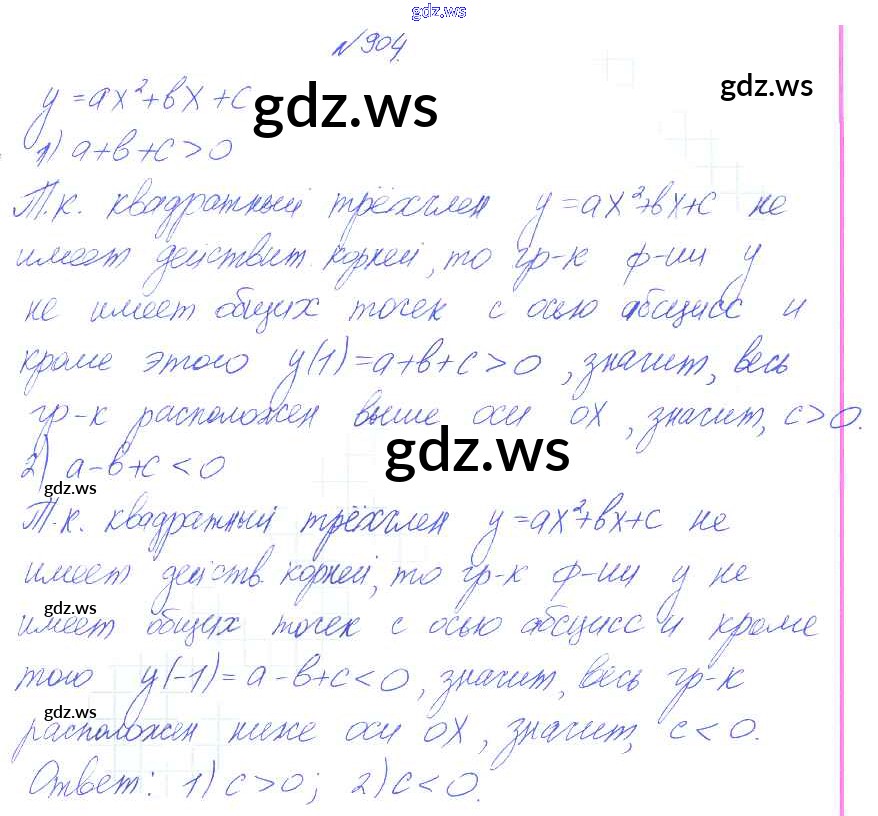 gdz.ws
№904.
gdz.ws
y=ax²+bx+c
gdz.ws
1) a+b+c>0
Т.к. квадратный трёхчлен y=ax²+bx+c не
имеет действит. корней, то гр-к ф-ии y
не имеет общих точек с осью абсцисс и
кроме этого y(1)=a+b+c>0, значит, весь
гр-к расположен выше оси OX, значит, c>0.
gdz.ws
2) a-b+c<0
gdz.ws
Т.к. квадратный трёхчлен y=ax²+bx+c не
имеет действ. корней, то гр-к ф-ии y не
gdz.ws
имеет общих точек с осью абсцисс и кроме
того y(-1)=a-b+c<0, значит, весь гр-к
gdz.ws
расположен ниже оси OX, значит, c<0.
Ответ: 1) c>0; 2) c<0.